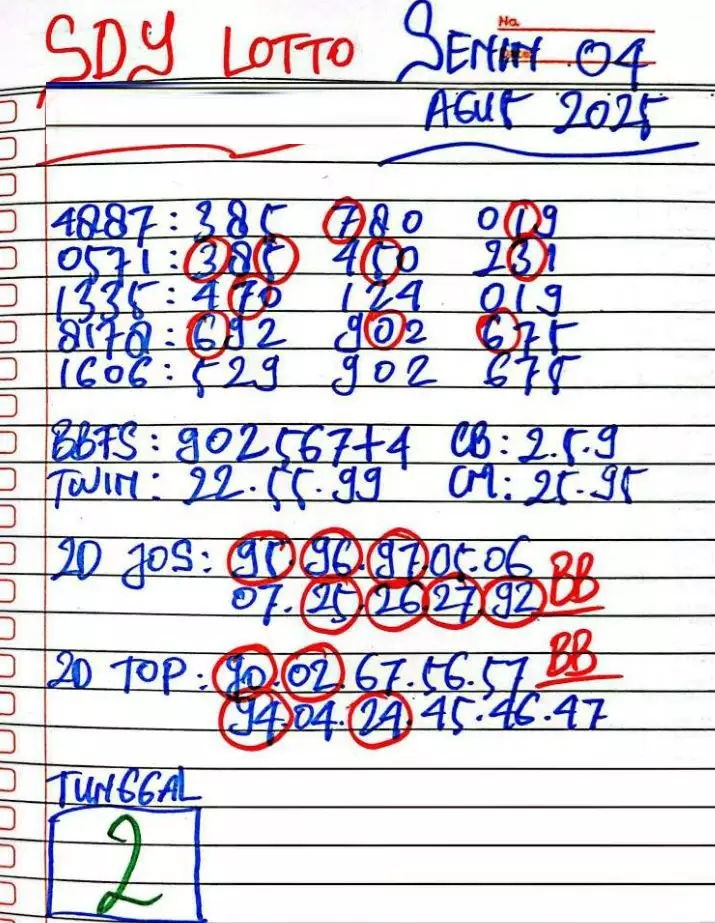 No.
SDY LOTTO SENIN 04
AGUS 2025
4887 : 385 780 019
0571 : 385 450 231
1335 : 470 124 019
8178 : 692 902 675
1606 : 529 902 678
BBFS : 902567+4 CB : 2.5.9
TWIN : 22.55.99 CM : 25.95
2D JOS : 95.96.97.05.06
07.25.26.27.92 BB
2D TOP : 90.02.67.56.57 BB
94.04.24.45.46.47
TUNGGAL
2